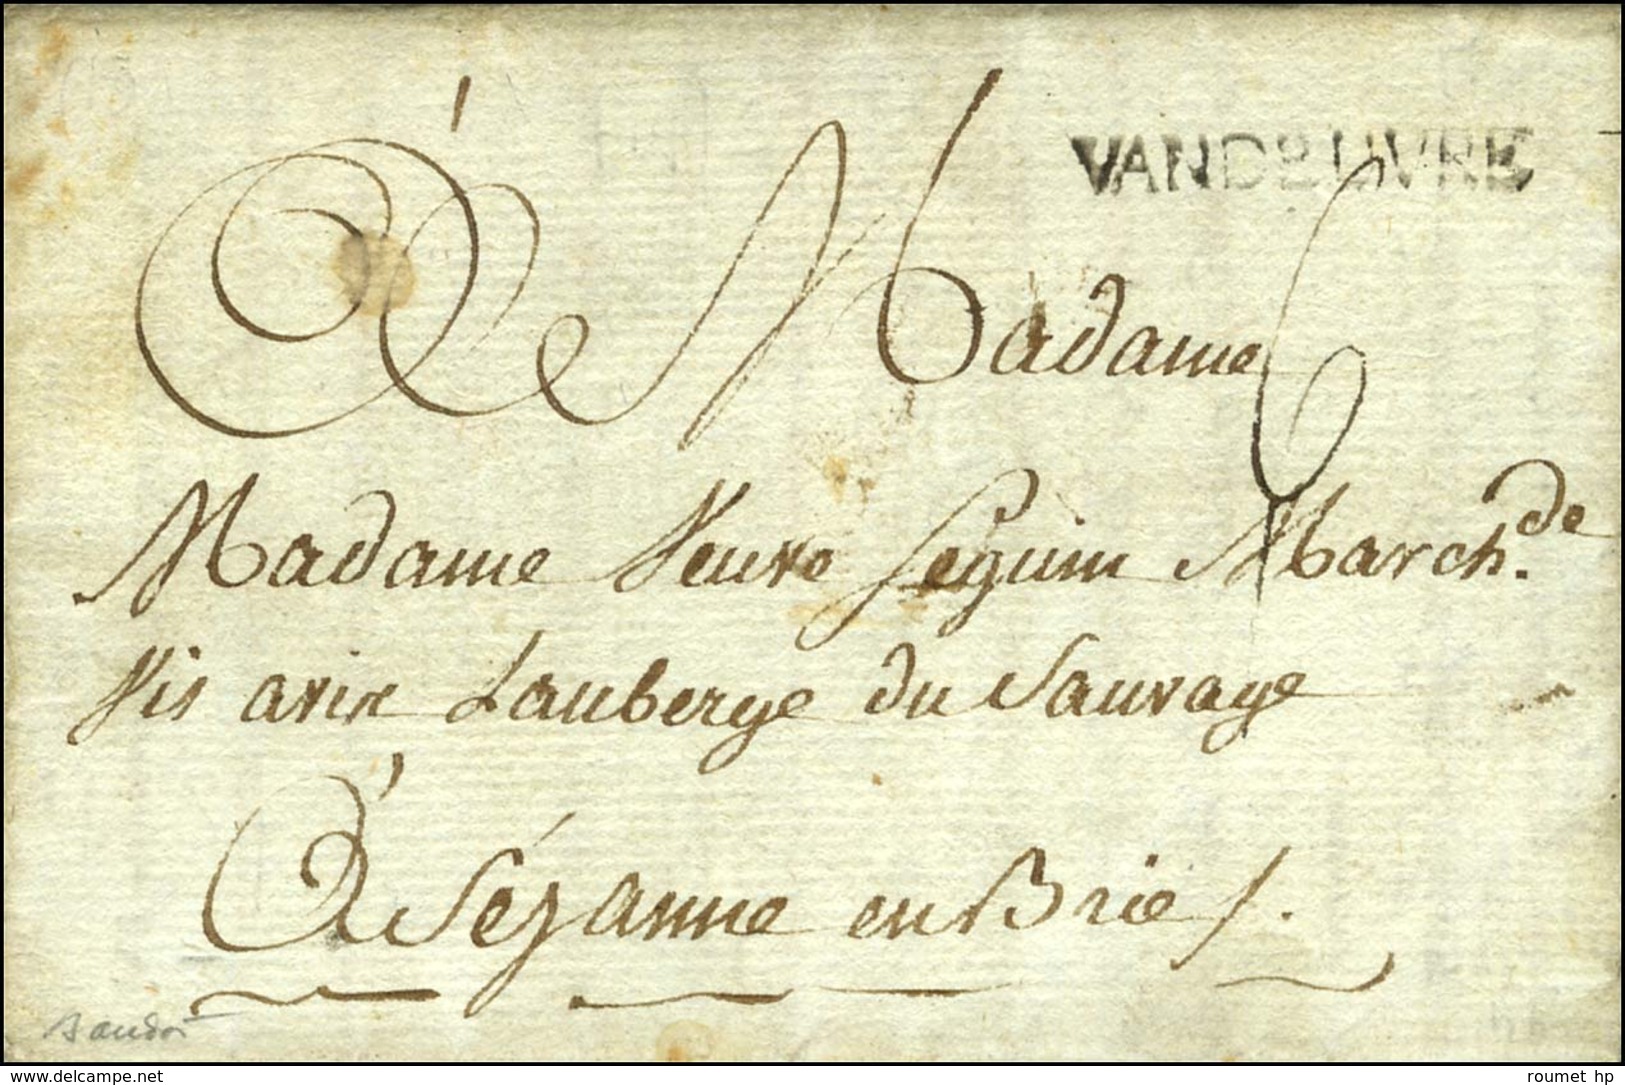 VANDEUVRE
À Madame
6
Madame Veuve Seguin March.de
Vis avix Lauberge du Sauvage
À Sézanne en Brie /.
www.delcampe.net
roumet hp